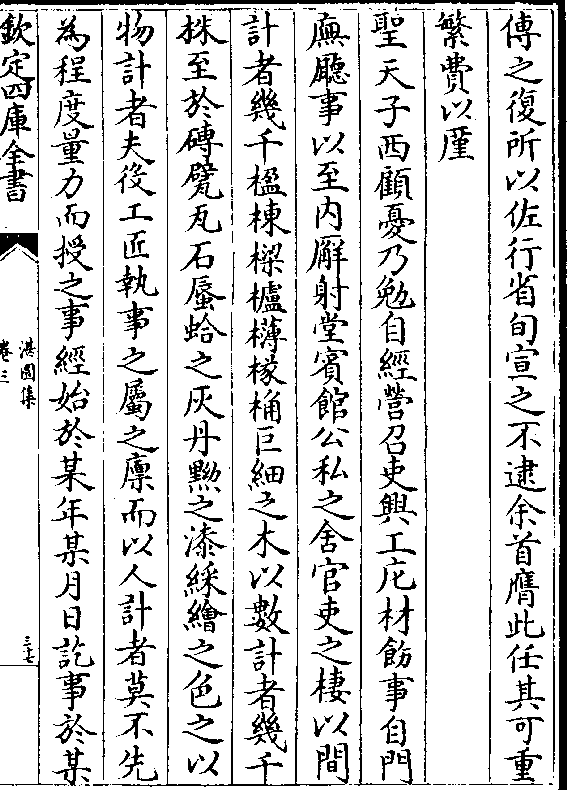 傅之復所以佐行省旬宣之不逮余首膺此任其可重
繁費以廑
聖天子西顧憂乃勉自經營召吏興工庀材飭事自門
廡廳事以至内廨射堂賓館公私之舍官吏之棲以間
計者幾千楹棟樑櫨欂椽桷巨細之木以數計者幾千
株至於磚甓瓦石蜃蛤之灰丹黝之漆綵繪之色之以
物計者夫役工匠執事之屬之廪而以人計者莫不先
為程度量力而授之事經始於某年某月日訖事於某
欽定四庫全書
湛園集
卷三
三七